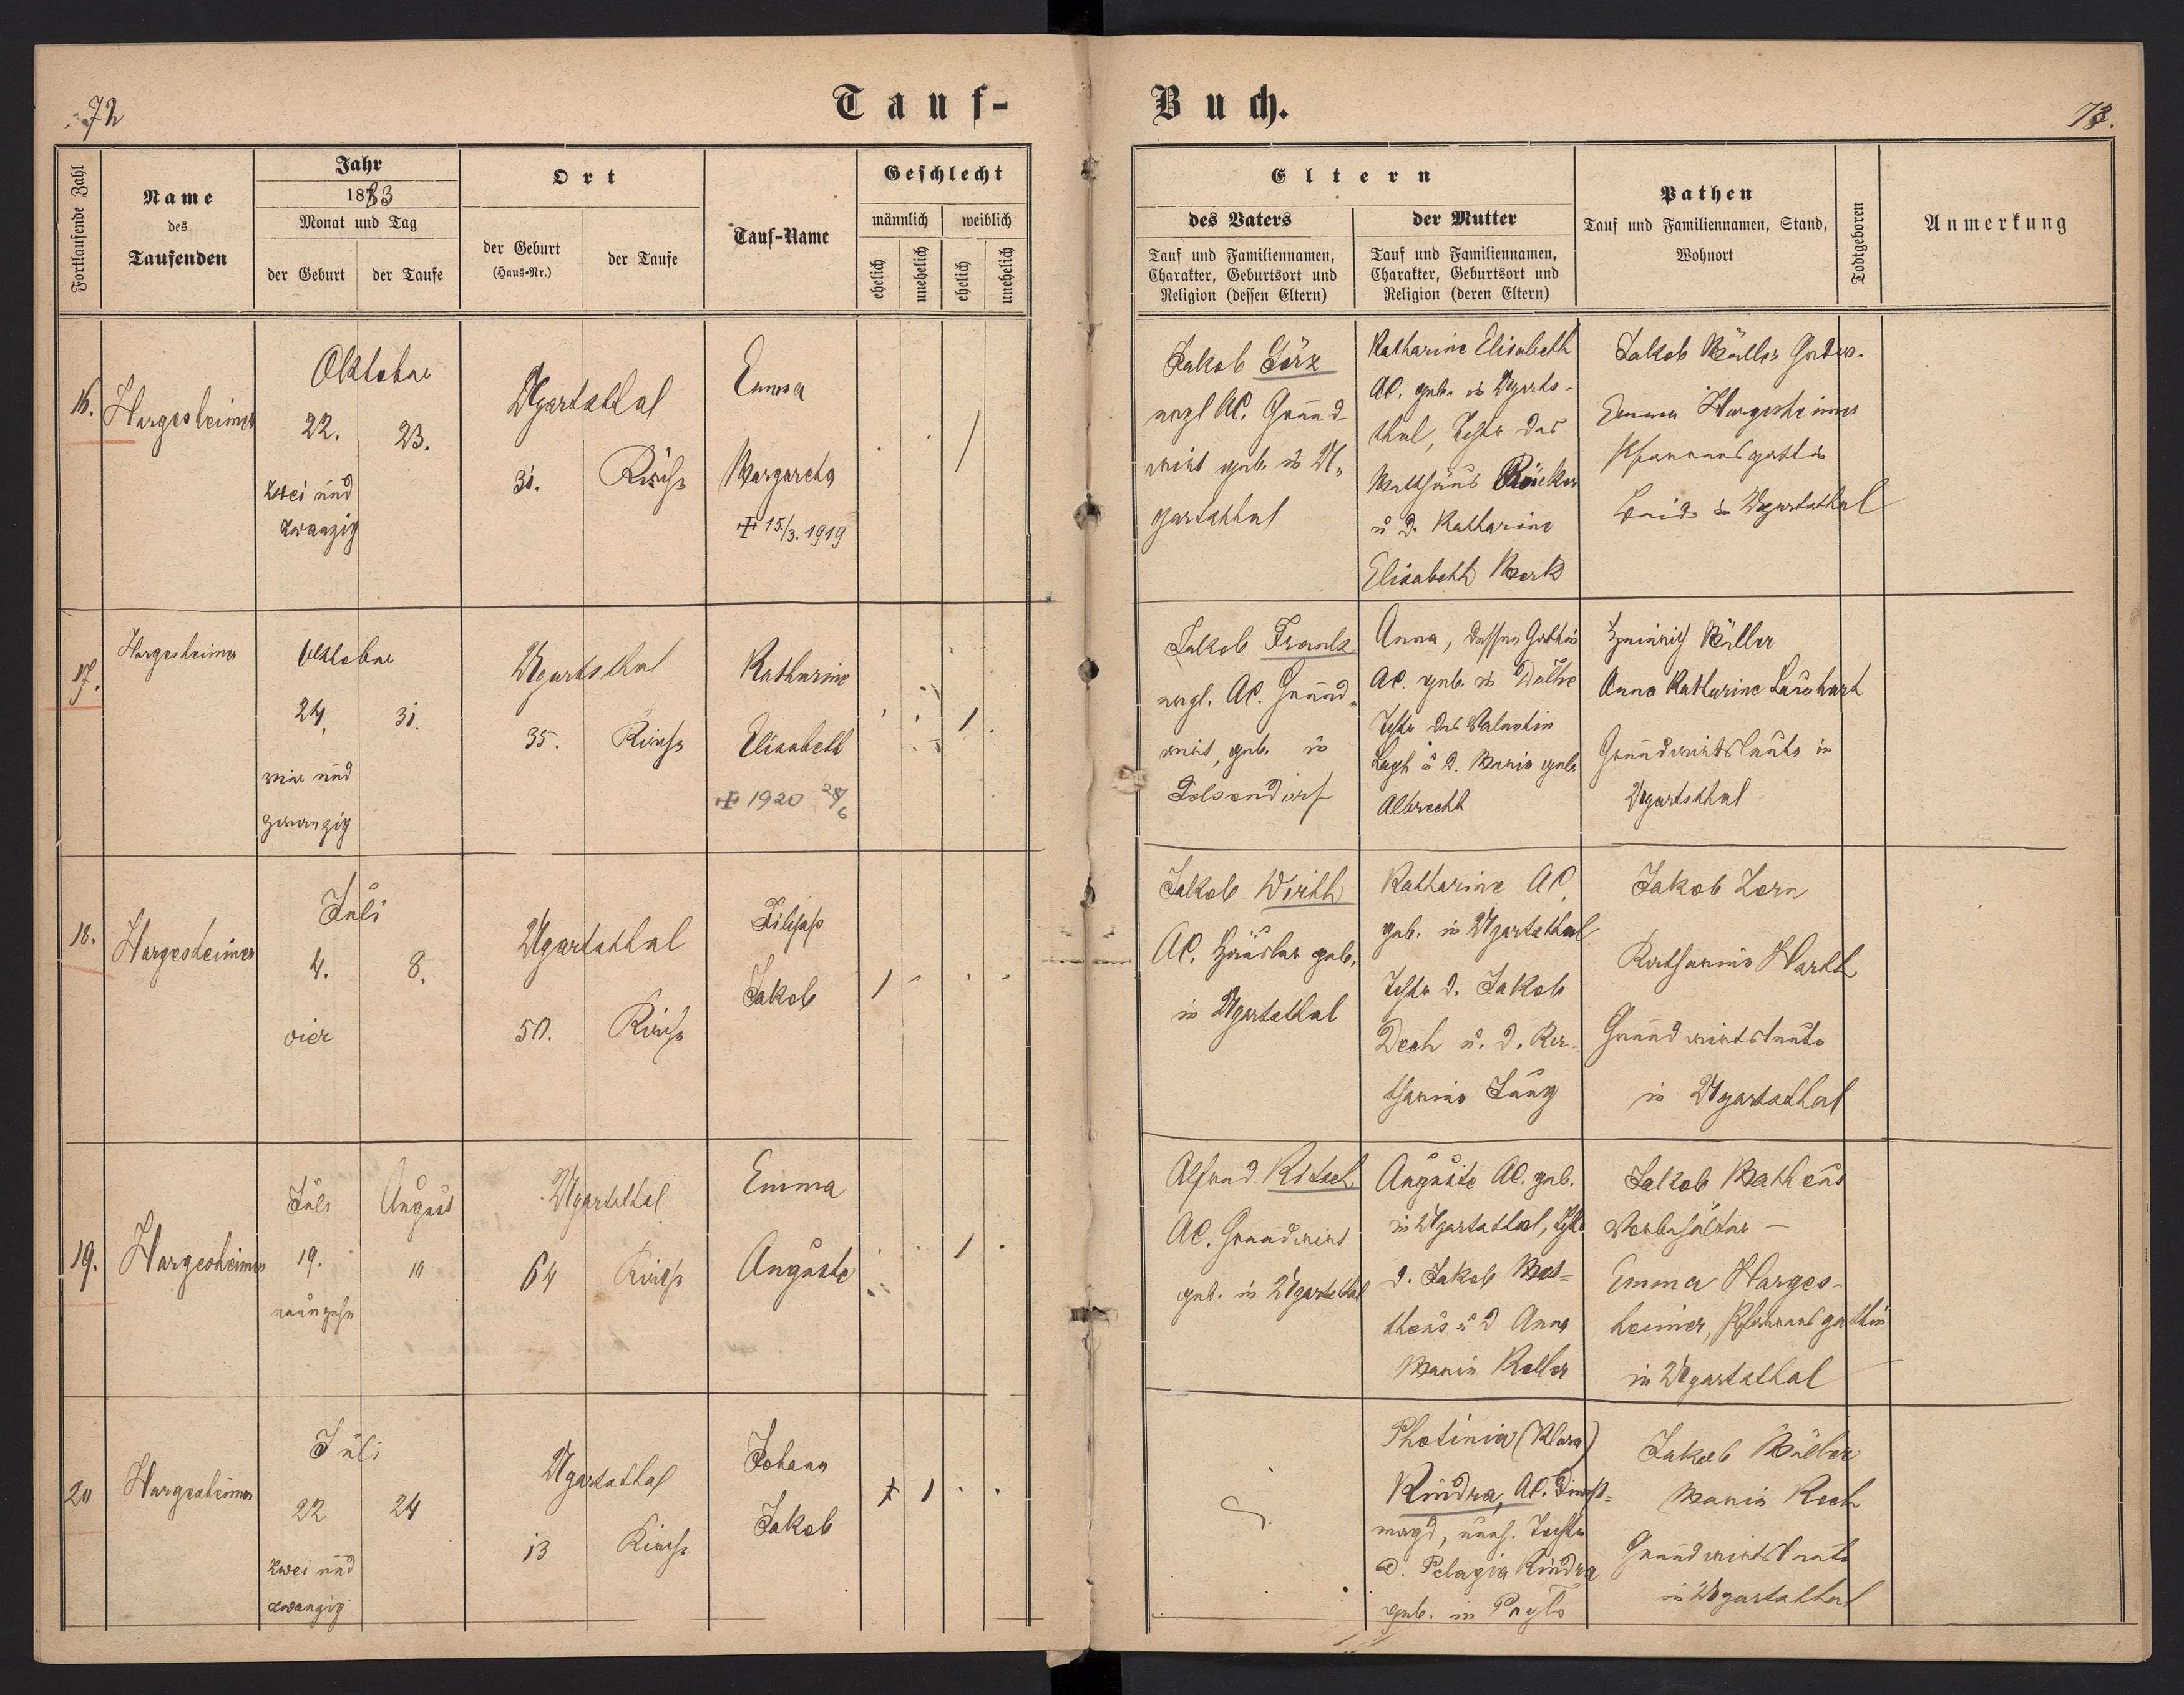 72
Tauf-
Buch.
73.
Fortlaufende Zahl
Name
des
Taufenden
Jahr
1883
Monat und Tag
der Geburt
der Taufe
Ort
der Geburt
(Haus-Nr.)
der Taufe
Tauf-Name
Geschlecht
männlich
weiblich
ehelich
unehelich
ehelich
unehelich
Eltern
des Vaters
Tauf und Familiennamen,
Charakter, Geburtsort und
Religion (dessen Eltern)
der Mutter
Tauf und Familiennamen,
Charakter, Geburtsort und
Religion (deren Eltern)
Pathen
Tauf und Familiennamen, Stand,
Wohnort
Todtgeboren
Anmerkung
16.
Hargesheimer
Oktober
22.
23.
zwei und
zwanzig
Ugartsthal
31.
Kirche
Emma
Margaretha
15/3. 1919
Jakob
evgl AC. Grund-
wirt geb. in U-
gartsthal
Katharine Elisabeth
AC. geb. in Ugarts-
thal, Tchtr des
Matthäus
u d. Katharine
Elisabeth Merk
Jakob Müller
Emma Hargesheimer
Pfarrersgattin
Beide in Ugartsthal
17.
Hargesheimer
Oktober
24.
31.
vier und
zwanzig
Ugartsthal
35.
Kirche
Katharine
Elisabeth
1920 24/6
Jakob Frank
evgl. AC. Grund-
wirt, geb. in
Anna, dessen Gattin
AC. geb. in
Tchtr des Valentin
u d. Maria geb.
Albrecht
Heinrich Müller
Anna Katharine
Grundwirtsleute in
Ugartsthal
18.
Hargesheimer
Juli
4.
8.
vier
Ugartsthal
50.
Kirche
Filipp
Jakob
Jakob Wirth
AC. Häusler geb.
in Ugartsthal
Katharine AC
geb. in Ugartsthal
Tchtr d. Jakob
Dech u. d. Ka-
tharine Jung
Jakob Zorn
Katharine Harth
Grundwirtsleute
in Ugartsthal
19.
Hargesheimer
Juli
August
19.
10
neunzehn
Ugartsthal
64
Kirche
Emma
Auguste
Alfred.
AC. Grundwirt
geb. in Ugartsthal
Auguste AC. geb.
in Ugartsthal, Tchtr
d. Jakob Mat-
theus u d Anna
Maria Keller
Jakob Mattheus
Emma Harges-
heimer, Pfarrersgattin
in Ugartsthal
20
Hargesheimer
Juli
22
24
zwei und
zwanzig
Ugartsthal
13
Kirche
Johann
Jakob
Photinia (Klara)
Kindra, AC. Dienst-
magd, uneh. Tochter
d. Pelagia Kindra
geb. in
Jakob Müller
Maria Koch
Grundwirtsleute
in Ugartsthal